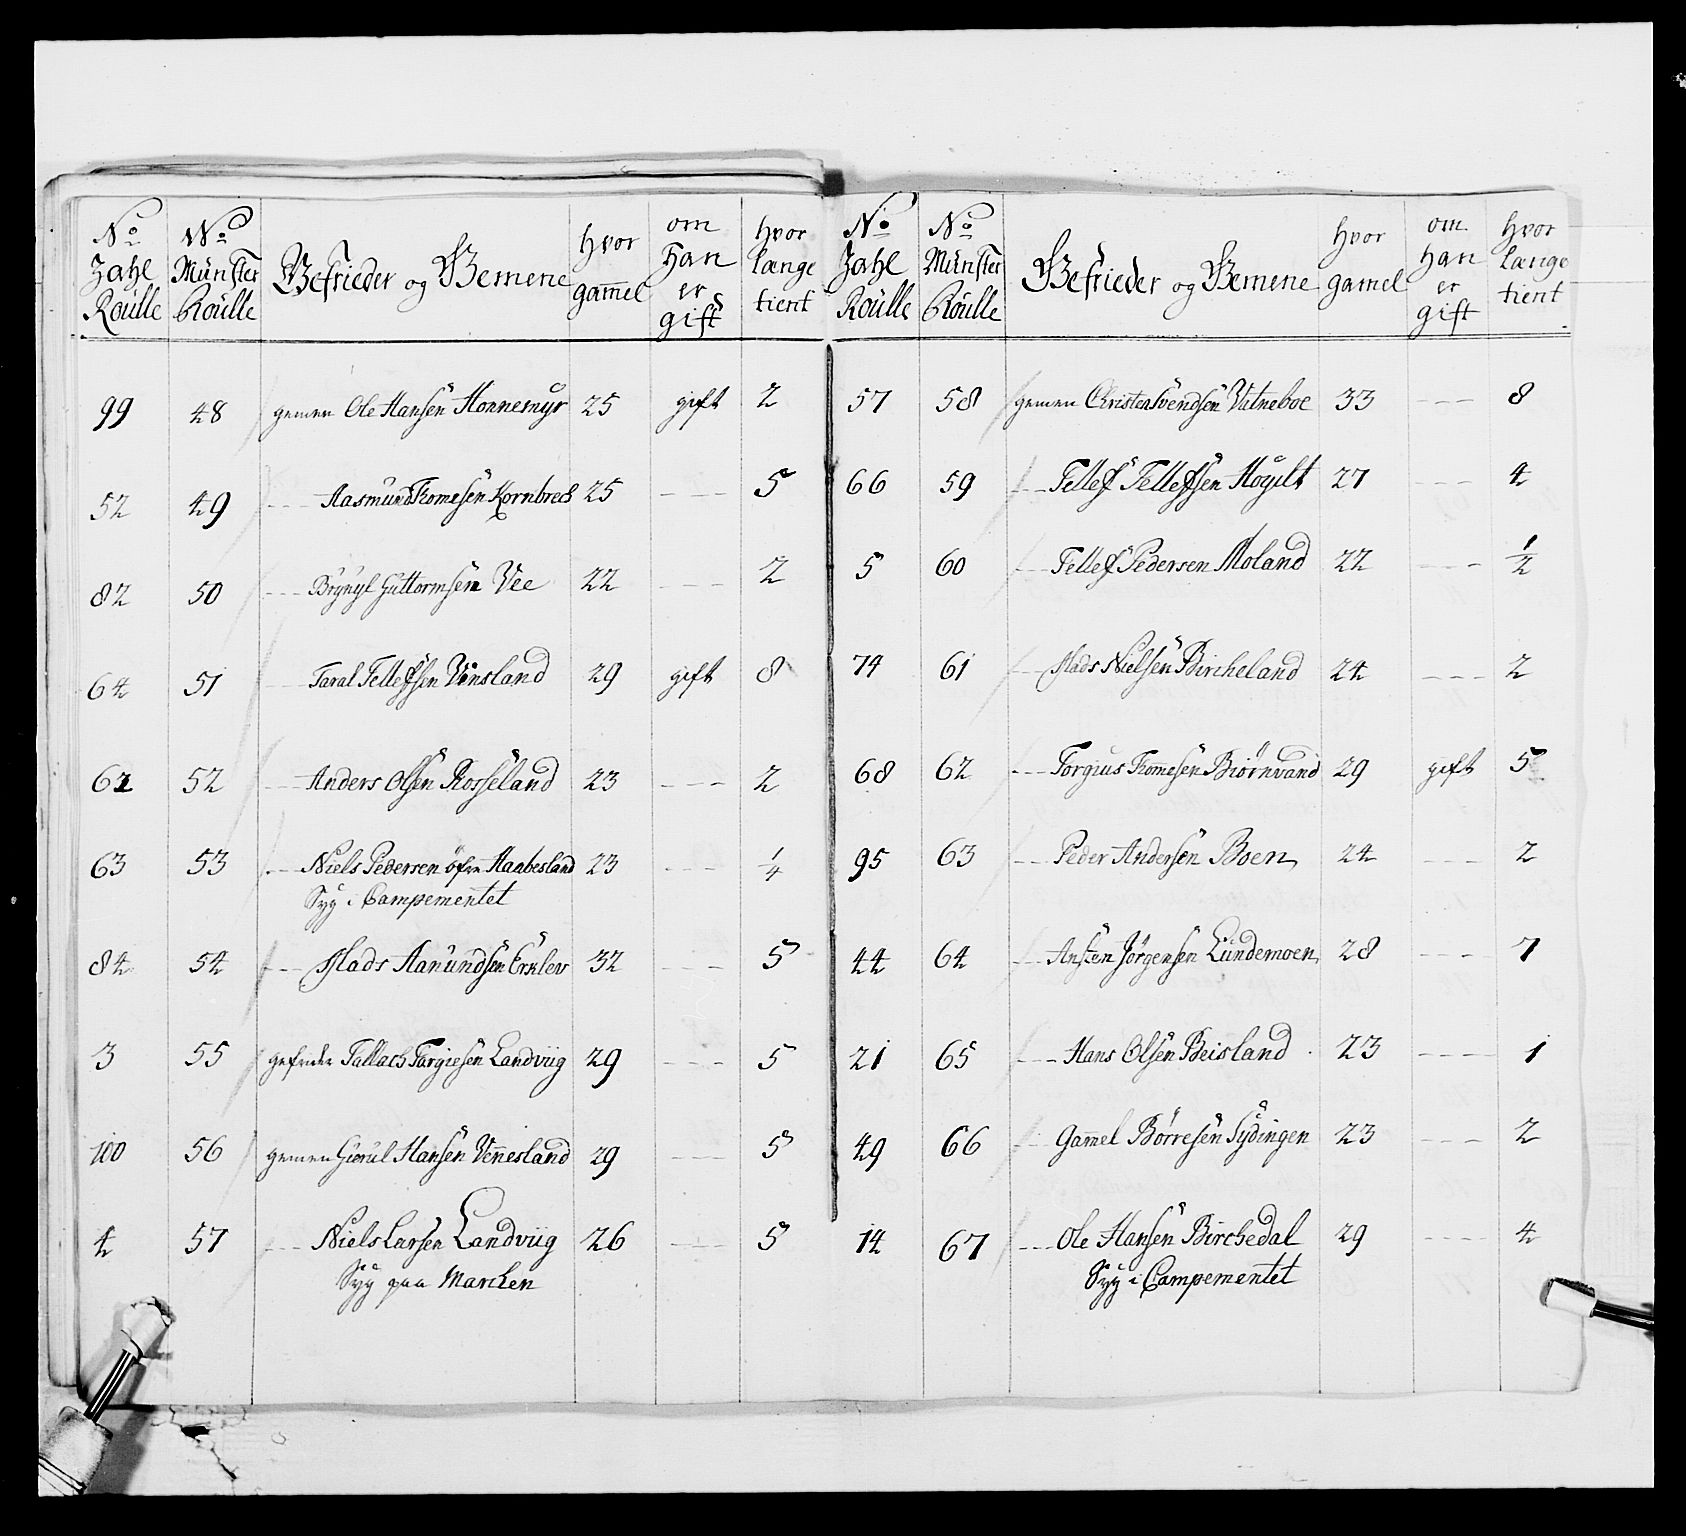 No Zahl Roulle | No Münster Roulle | Gefrieder og Gemene | hvor gam̄el | om Han er gift | hvor længe tient
99 48 gemen Ole Hansen Honnemyr 25 gift 2
52 49 --- Aasmund Tomesen Kornbreck 25 --- 5
82 50 --- Guttormsen Vee 22 --- 2
64 51 --- Taral Tellefsen Vinsland 29 gift 8
62 52 --- Anders Olsen Rosseland 23 --- 2
63 53 --- Niels Pedersen öfre Haabesland 23 --- 1/4
Syg i Campementet
84 54 --- Mads Aanundsen Erklev 32 --- 5
3 55 gefrider Tallach Torgiesen Landviig 29 --- 5
100 56 gemen Giørul Hansen Ven̄esland 29 --- 5
4 57 --- Niels Larsen Landviig 26 --- 5
Syg paa Marchen
No Zahl Roulle | No Münster Roulle | Gefrieder og Gemene | hvor gamel | om han er gift | hvor længe tient
57 58 gemen Christen Svendsen Vatneboe 33 --- 8
66 59 --- Tellef Tellefsen Høgilt 27 --- 4
5 60 --- Tellef Pedersen Moland 22 --- 1/2
74 61 --- Mads Nielsen Bircheland 24 --- 2
68 62 --- Torgius Tomesen Biørnvand 29 gift 5
95 63 --- Peder Andersen Boen 24 --- 2
44 64 --- Ansten Jørgensen Lundemoen 28 --- 7
21 65 --- Hans Olsen Beisland 23 --- 1
49 66 --- Gam̄el Børresen Sydingen 23 --- 2
14 67 --- Ole Hansen Birchedal 29 --- 4
Syg i Campementet